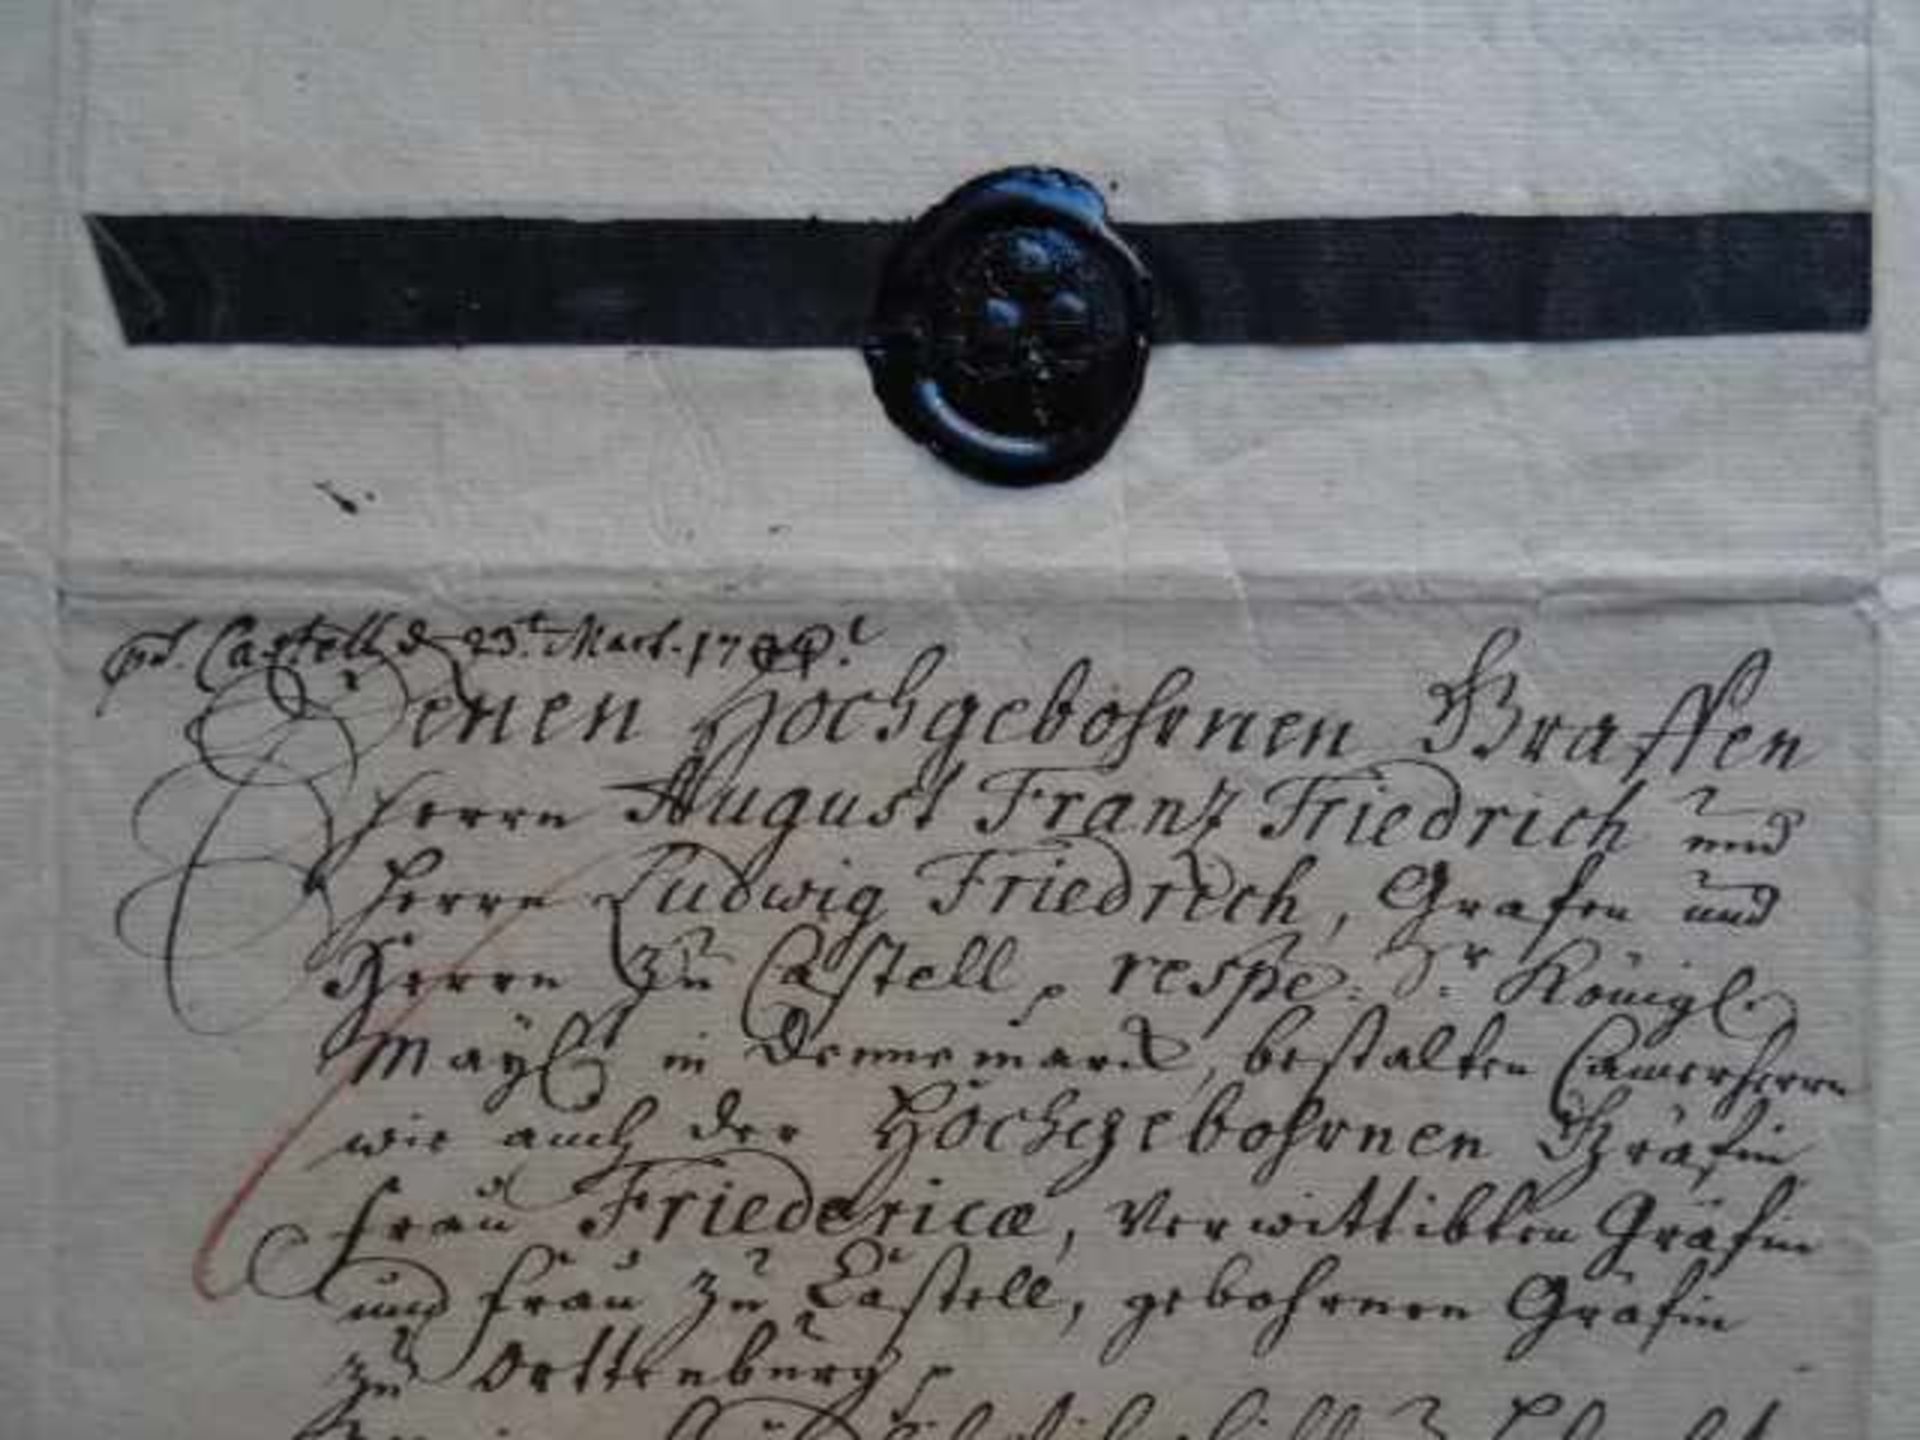 Castell d 23t. Mart.
Denen Hochgebohrnen Graffen
Herrn August Frantz Friedrich und
Herrn Ludwig Friedrich, Grafen und
Herrn zu Castell, respe: Sr: Königl.
Mayt in Dennemarck, bestalten Camerherrn
wie auch der Hochgebohrnen Gräfin
Frau Friedericæ, Verwittibten Gräfin
und Frau zu Castell, gebohrnen Gräfin
zu Orttenburg,